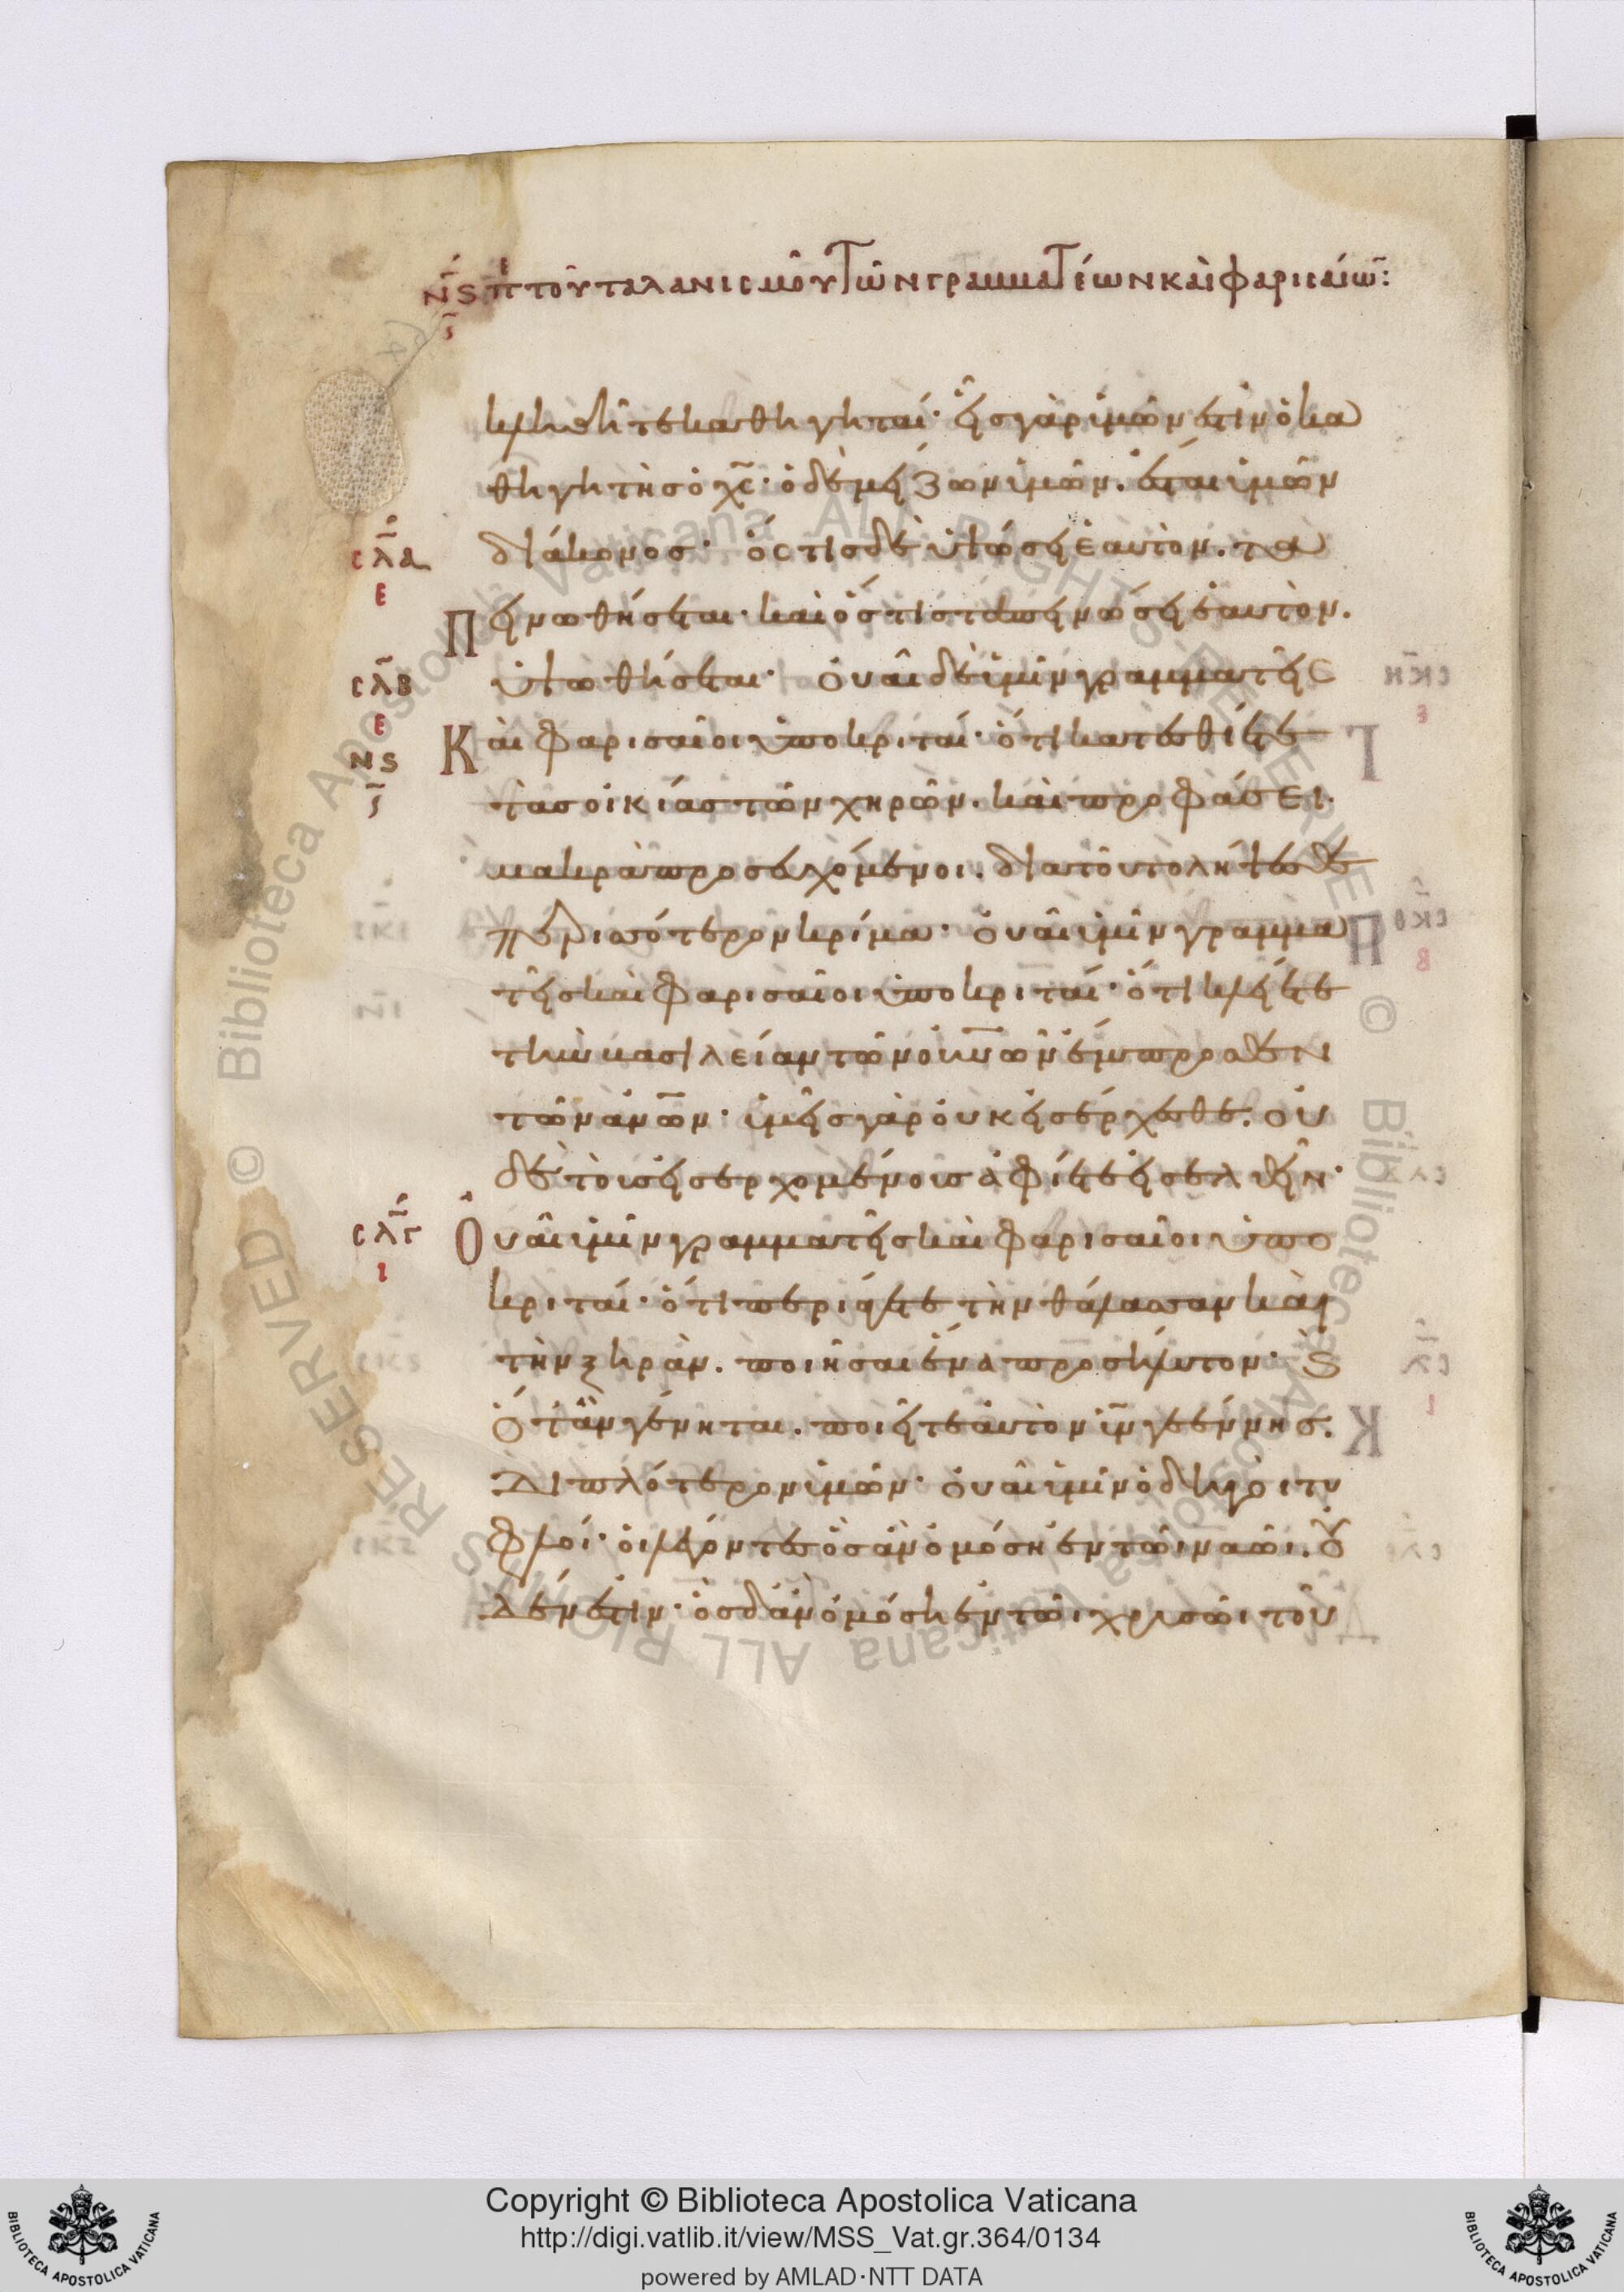 νς π̅ τοῦ ταλανισμοῦ τῶν γραμματέων καὶ φαρισαίω̅:
ς̅
κληθῆτε καθηγηταί· εἷς γὰρ ὑμῶν ἐστιν ὁ κα
θηγητὴς ὁ χ̅ς̅· ὁ δὲ μείζων ὑμῶν. ἔσται ὑμῶν
σλα
διάκονος· ὅστις δὲ ὑψώσει ἑαυτὸν. τα
ε
Πεινωθήσεται· καὶ ὅστις ταπεινώσει ἑαυτὸν.
σλβ
ὑψωθήσεται· Οὐαὶ δὲ ὑμῖν γραμματεῖς
ε
Καὶ φαρισαῖοι ὑποκριταί· ὅτι κατεσθίετε
νς
τὰς οἰκίας τῶν χηρῶν. καὶ προφάσει.
ς̅
μακρὰ προσευχόμενοι. διατοῦτο λήψεσθε
περισσότερον κρίμα· Οὐαὶ ὑμῖν γραμμα
τεῖς καὶ φαρισαῖοι ὑποκριταί· ὅτι κλείετε
τὴν βασιλείαν τῶν οὐ̅ν̅ω̅ν̅ ἔμπροσθεν
τῶν ἀ̅ν̅ω̅ν̅· ὑμεῖς γὰρ οὐκ εἰσέρχεσθε. οὐ
δὲ τοὺς εἰσερχομένους ἀφίετε εἰσελθεῖν·
σλγ
Οὐαὶ ὑμῖν γραμματεῖς καὶ φαρισαῖοι ὑπο
ι
κριταί· ὅτι περιάγετε τὴν θάλασσαν καὶ
τὴν ξηρὰν. ποιῆσαι ἕνα προσήλυτον· Ϗ
ὅτἂν γένηται. ποιεῖτε αὐτὸν ὑ̅ν̅ γεέννης.
Διπλότερον ὑμῶν· οὐαὶ ὑμῖν ὁδηγοὶ τυ
φλοί· οἱ λέγοντες ὃς ἂν ὀμόσῃ ἐν τῶι ναῶι. οὐ
Δέν ἐστιν· ὃς δ'ἂν ὀμόσῃ ἐν τῶι χρυσῶι τοῦ
Copyright © Biblioteca Apostolica Vaticana
http://digi.vatlib.it/view/MSS_Vat.gr.364/0134
powered by AMLAD·NTT DATA